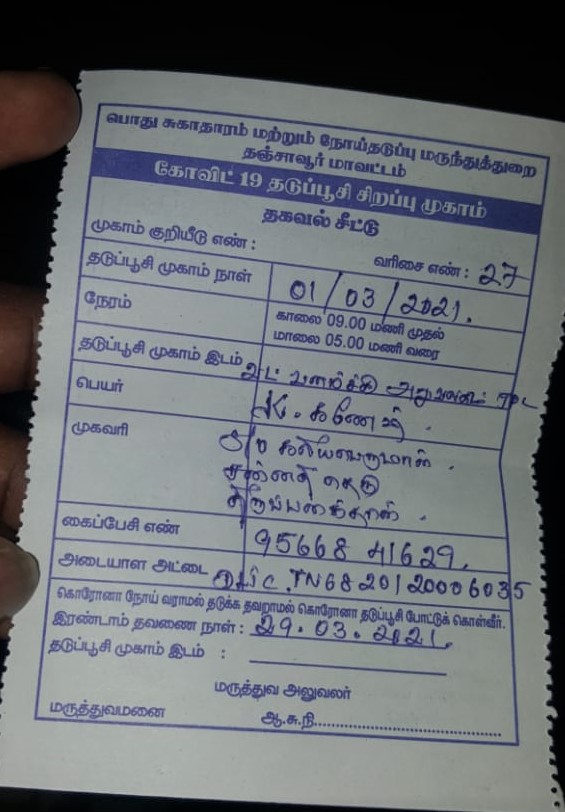 பொது சுகாதாரம் மற்றும் நோய்தடுப்பு மருந்துத்துறை
தஞ்சாவூர் மாவட்டம்
கோவிட் 19 தடுப்பூசி சிறப்பு முகாம்
தகவல் சீட்டு
முகாம் குறியீடு எண் : வரிசை எண் : 27
தடுப்பூசி முகாம் நாள் 01/03/2021.
நேரம் காலை 09.00 மணி முதல்
மாலை 05.00 மணி வரை
தடுப்பூசி முகாம் இடம்
பெயர் K. கணேஷ்.
முகவரி S/o கலியபெருமாள்.
சன்னதி தெரு
திருப்பனந்தாள்.
கைப்பேசி எண் 95668 41629.
அடையாள அட்டை TN68 20120006035
கொரோனா நோய் வராமல் தடுக்க தவறாமல் கொரோனா தடுப்பூசி போட்டுக் கொள்வீர்.
இரண்டாம் தவணை நாள் : 29.03.2021.
தடுப்பூசி முகாம் இடம் :
மருத்துவ அலுவலர்
மருத்துவமனை ஆ.சு.நி......................................